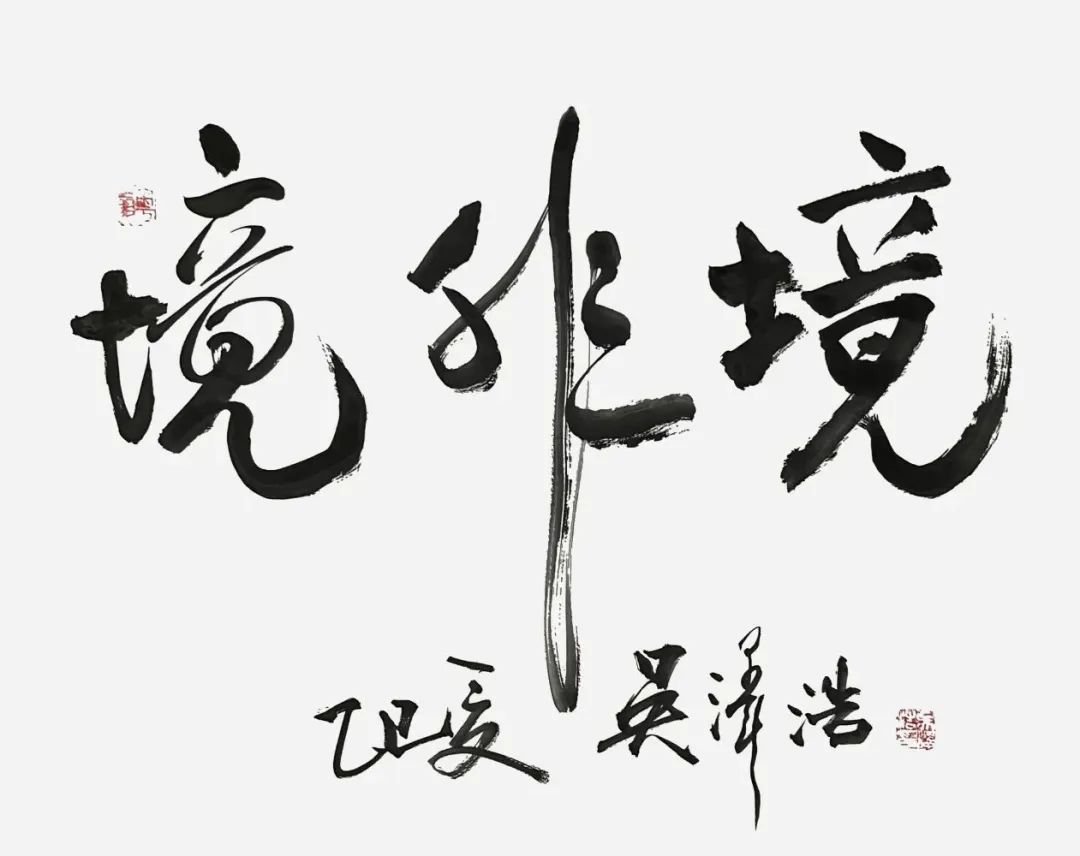 境非境
乙巳夏 吴泽浩